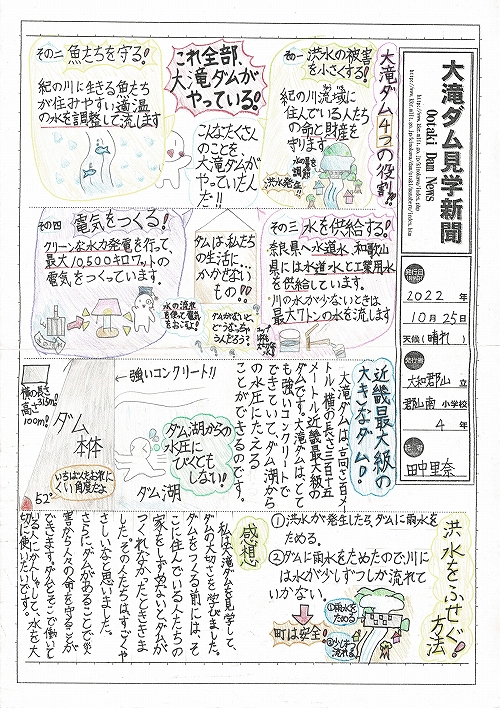 大滝ダム見学新聞
Ootaki Dam News
発行日
2022年
10月25日
天候(晴れ)
発行者
大和郡山 立
郡山南 小学校
4年
田中里奈
大滝ダム4つの役割!!
その一 洪水の被害
を小さくする!
紀の川流域に
住んでいる人たち
の命と財産を
守ります
洪水発生!!
これ全部、
大滝ダムが
やっている!
こんなたくさん
のことを
大滝ダムが
やっていた
んだ!!
その二 魚たちを守る!
紀の川に生きる魚たち
が住みやすい適温
の水を調整して流します
その三 水を供給する!
奈良県へ水道水、和歌山
県には水道水と工業用水
を供給しています。
川の水が少ないときは、
最大7トンの水を流します
ダムは私たち
の生活に…
かかせない
もの!!
ダムがないと、
どうなっちゃ
うんだろう?
その四 電気をつくる!
クリーンな水力発電を行って、
最大10,500キロワットの
電気をつくっています。
水の流れ
を使って電気
をおこすよ!
近畿最大級の
大きなダム!
大滝ダムは、高さ百メー
トル、横の長さ三百十五
メートルで近畿最大級の
ダムです。大滝ダムは、とて
も強いコンクリートで
できていて、ダム湖から
の水圧にたえる
ことができるのです。
←強いコンクリート!!
ダム湖からの
水圧に
びくとも
しない!
ダム湖
横の長さ
315m!
高さ
100m!
ダム
本体
いちばんたおれに
くい角度だよ
52°
洪水をふせぐ!
方法
①洪水が発生したら、ダムに雨水を
ためる。
②ダムに雨水をためたので、川に
は水が少しずつしか流れて
いかない。
町は安全!
①雨水を
ためる
②少しずつ
流れる
感想
私は大滝ダムを見学して、
ダムの大切さを学びました。
ダムをつくる前には、そ
こに住んでいる人たちの
家をしずめないとダムが
つくれなかったとききま
した。その人たちはすごくや
さしいなと思いました。
さらにダムがあることで災
害から人々の命を守ることが
できます。ダムと
る人にかんしゃして、水を大
切に使いたいです。